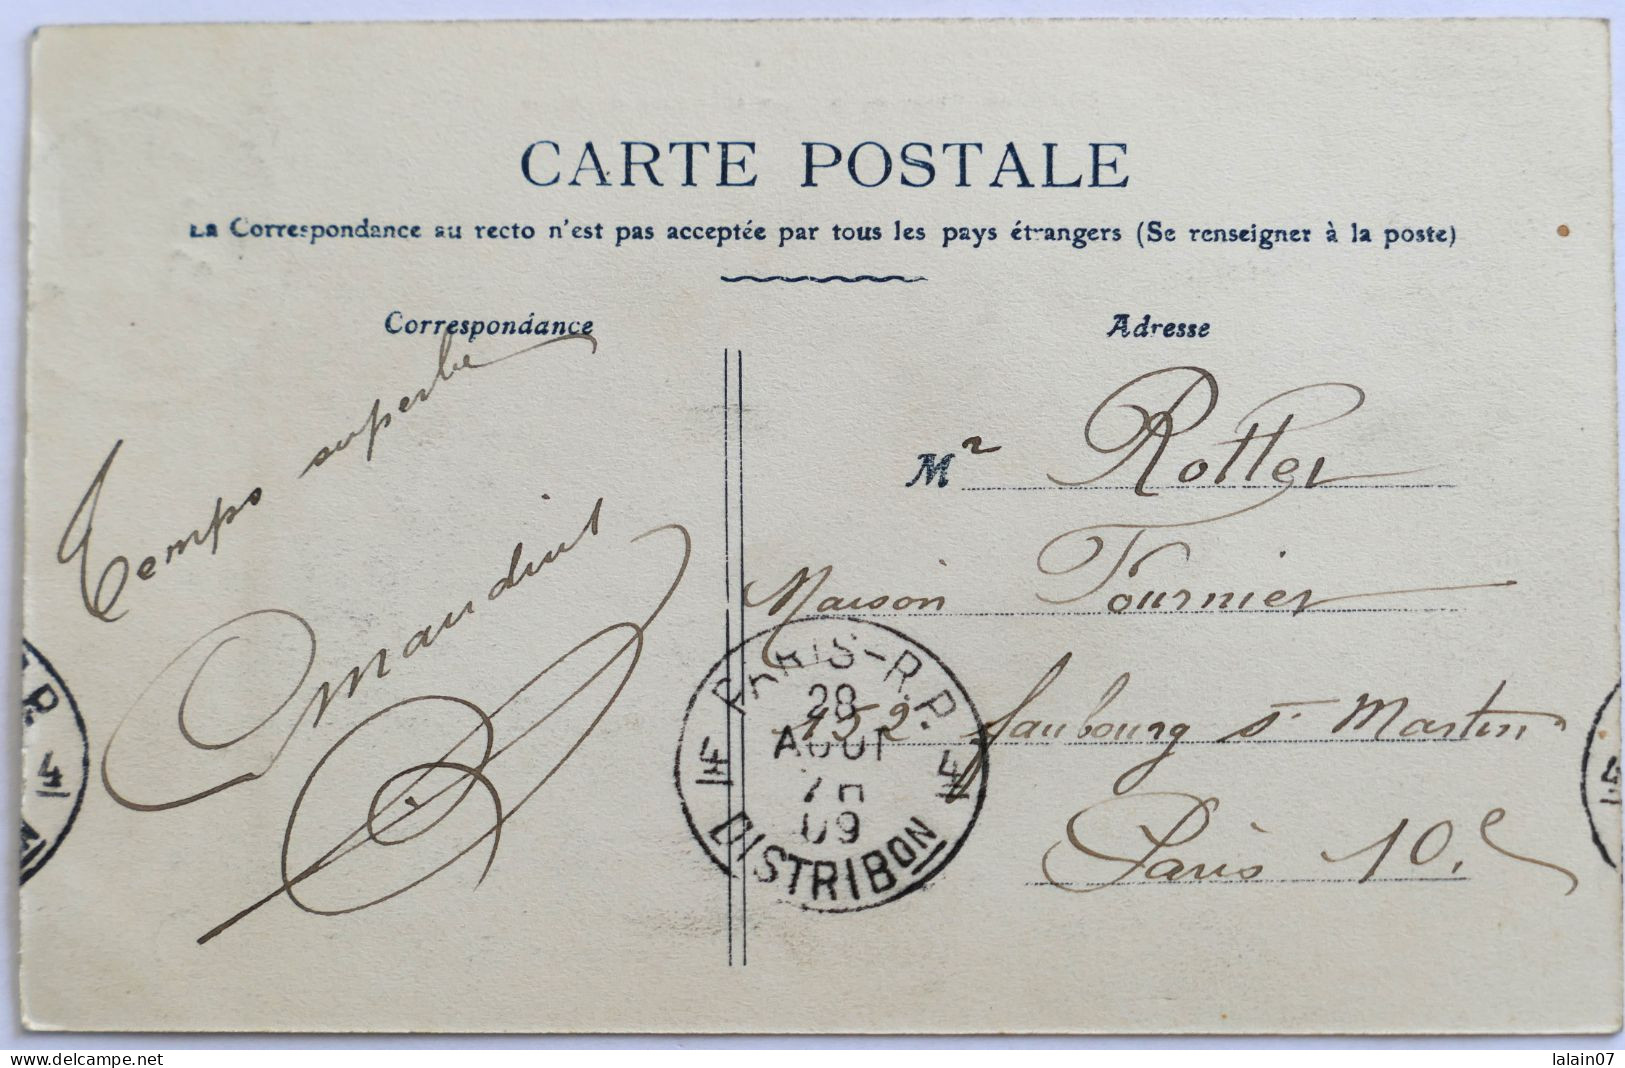 CARTE POSTALE
La Correspondance au recto n'est pas acceptée par tous les pays étrangers (Se renseigner à la poste)
Correspondance
Temps superbe
Adresse
Mr Rotter
Maison Fournier
152 faubourg St Martin
Paris 10e
PARIS-R.P.
28
AOUT
7H
09
4 4
DISTRIBON
R.P.
4
4
delcampe.net
lalain07